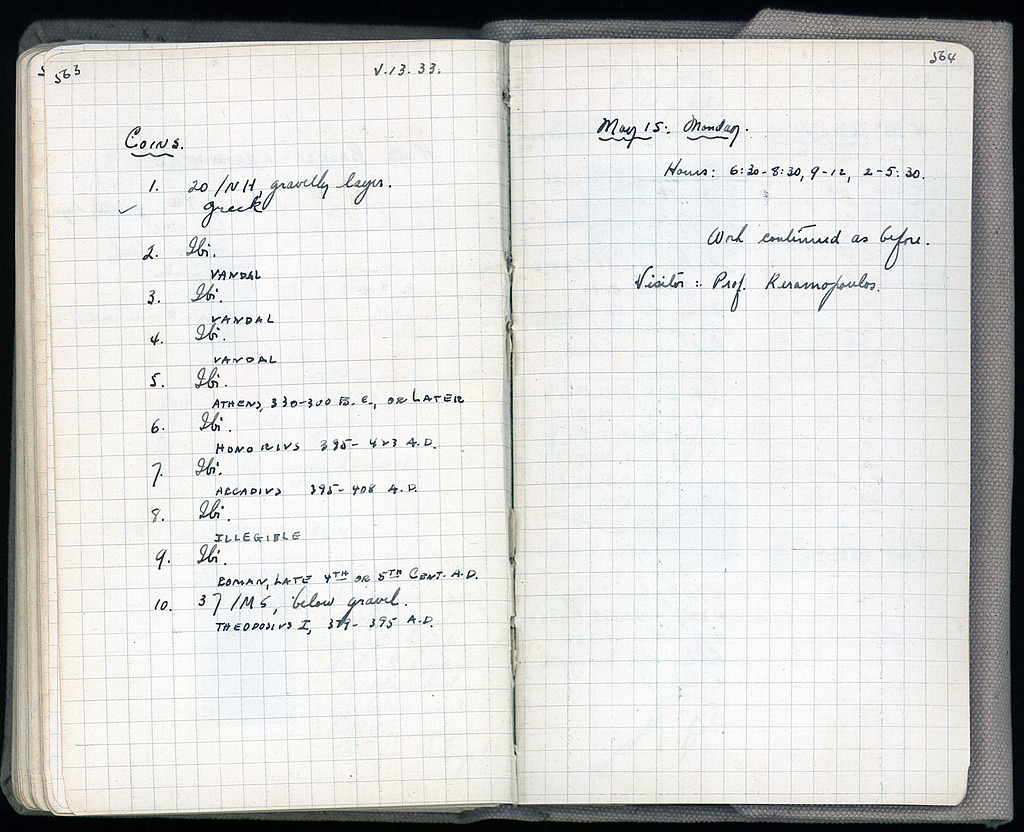 563
V.13.33.
Coins.
1. 20/NH, gravelly layer.
✓ Greek
2. Ibi.
VANDAL
3. Ibi.
VANDAL
4. Ibi.
VANDAL
5. Ibi.
ATHENS, 330-300 B.C., OR LATER
6. Ibi.
HONORIUS 395-423 A.D.
7. Ibi.
ARCADIUS 395-408 A.D.
8. Ibi.
ILLEGIBLE
9. Ibi.
ROMAN, LATE 4TH OR 5TH CENT. A.D.
10. 37/MS, below gravel.
THEODOSIUS I, 379-395 A.D.
564
May 15: Monday.
Hours: 6:30-8:30, 9-12, 2-5:30.
Work continued as before.
Visitor: Prof. Keramopoulos.